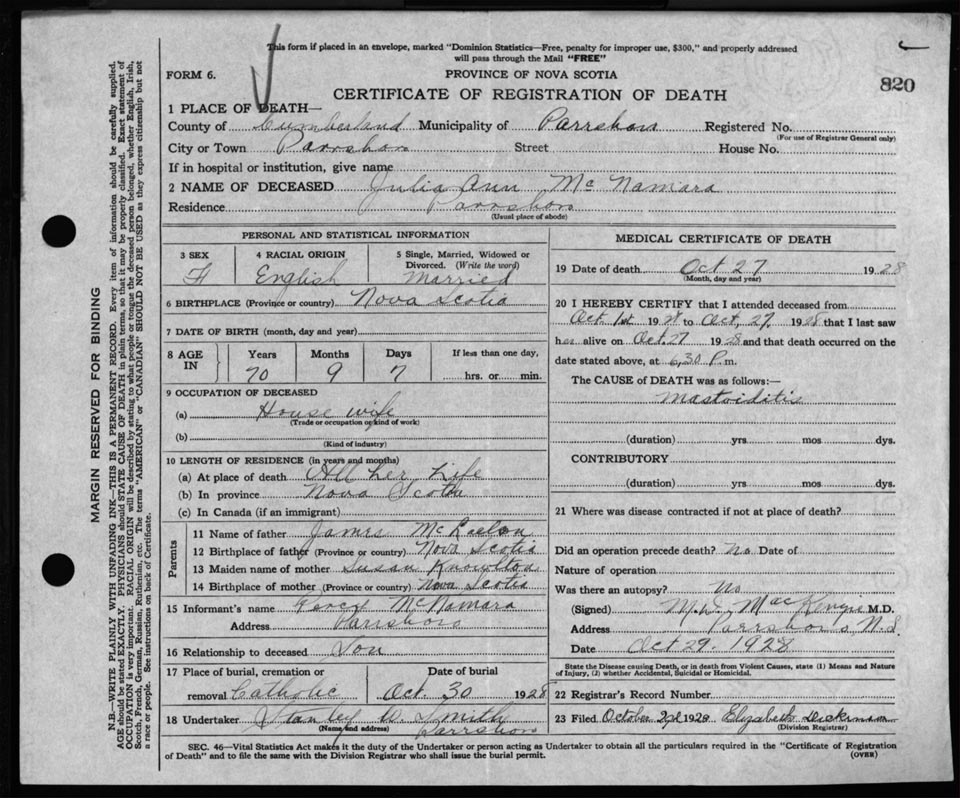 This form if placed in an envelope, marked "Dominion Statistics—Free, penalty for improper use, $300," and properly addressed
will pass through the Mail "FREE"
FORM 6.
PROVINCE OF NOVA SCOTIA
820
CERTIFICATE OF REGISTRATION OF DEATH
1 PLACE OF DEATH—
County of Cumberland Municipality of Parrsboro Registered No.
(For use of Registrar General only)
City or Town Parrsboro Street House No.
If in hospital or institution, give name
2 NAME OF DECEASED Julia Ann McNamara
Residence Parrsboro
(Usual place of abode)
PERSONAL AND STATISTICAL INFORMATION
3 SEX 4 RACIAL ORIGIN 5 Single, Married, Widowed or
Divorced. (Write the word)
F English Married
6 BIRTHPLACE (Province or country) Nova Scotia
7 DATE OF BIRTH (month, day and year)
8 AGE IN Years Months Days If less than one day,
70 9 7 hrs. or min.
9 OCCUPATION OF DECEASED
(a) House wife
(Trade or occupation or kind of work)
(b)
(Kind of industry)
10 LENGTH OF RESIDENCE (in years and months)
(a) At place of death All her Life
(b) In province Nova Scotia
(c) In Canada (if an immigrant)
Parents
11 Name of father James
12 Birthplace of father (Province or country) Nova Scotia
13 Maiden name of mother Susan Knowlton
14 Birthplace of mother (Province or country) Nova Scotia
15 Informant's name Percy McNamara
Address Parrsboro
16 Relationship to deceased Son
17 Place of burial, cremation or Date of burial
removal Catholic Oct 30 1928
18 Undertaker Stanley D. Smith
(Name and address) Parrsboro
MEDICAL CERTIFICATE OF DEATH
19 Date of death Oct 27 1928
(Month, day and year)
20 I HEREBY CERTIFY that I attended deceased from
Oct 1st 1928 to Oct, 27, 1928 that I last saw
her alive on Oct. 27 1928 and that death occurred on the
date stated above, at 6.30 P.m.
The CAUSE of DEATH was as follows:—
Mastoiditis
(duration) yrs mos dys.
CONTRIBUTORY
(duration) yrs. mos dys.
21 Where was disease contracted if not at place of death?
Did an operation precede death? No Date of
Nature of operation
Was there an autopsy? No
(Signed) MacKenzie M.D.
Address Parrsboro, N.S.
Date Oct 29, 1928
State the Disease causing Death, or in death from Violent Causes, state (1) Means and Nature
of Injury, (2) whether Accidental, Suicidal or Homicidal.
22 Registrar's Record Number
23 Filed October 1928 Elizabeth Dickinson
(Division Registrar)
SEC. 46—Vital Statistics Act makes it the duty of the Undertaker or person acting as Undertaker to obtain all the particulars required in the "Certificate of Registration
of Death" and to file the same with the Division Registrar who shall issue the burial permit.
(OVER)
MARGIN RESERVED FOR BINDING
N.B.—WRITE PLAINLY WITH UNFADING INK—THIS IS A PERMANENT RECORD. Every item of information should be carefully supplied.
AGE should be stated EXACTLY. PHYSICIANS should STATE CAUSE OF DEATH in plain terms, so that it may be properly classified. Exact statement of
OCCUPATION is very important. RACIAL ORIGIN will be described by stating to what people or tongue the deceased person belonged, whether English, Irish,
Scotch, French, German, Russian, Ruthenian, etc. The terms "AMERICAN" or "CANADIAN" SHOULD NOT BE USED as they express citizenship but not
a race or people. See instructions on back of Certificate.